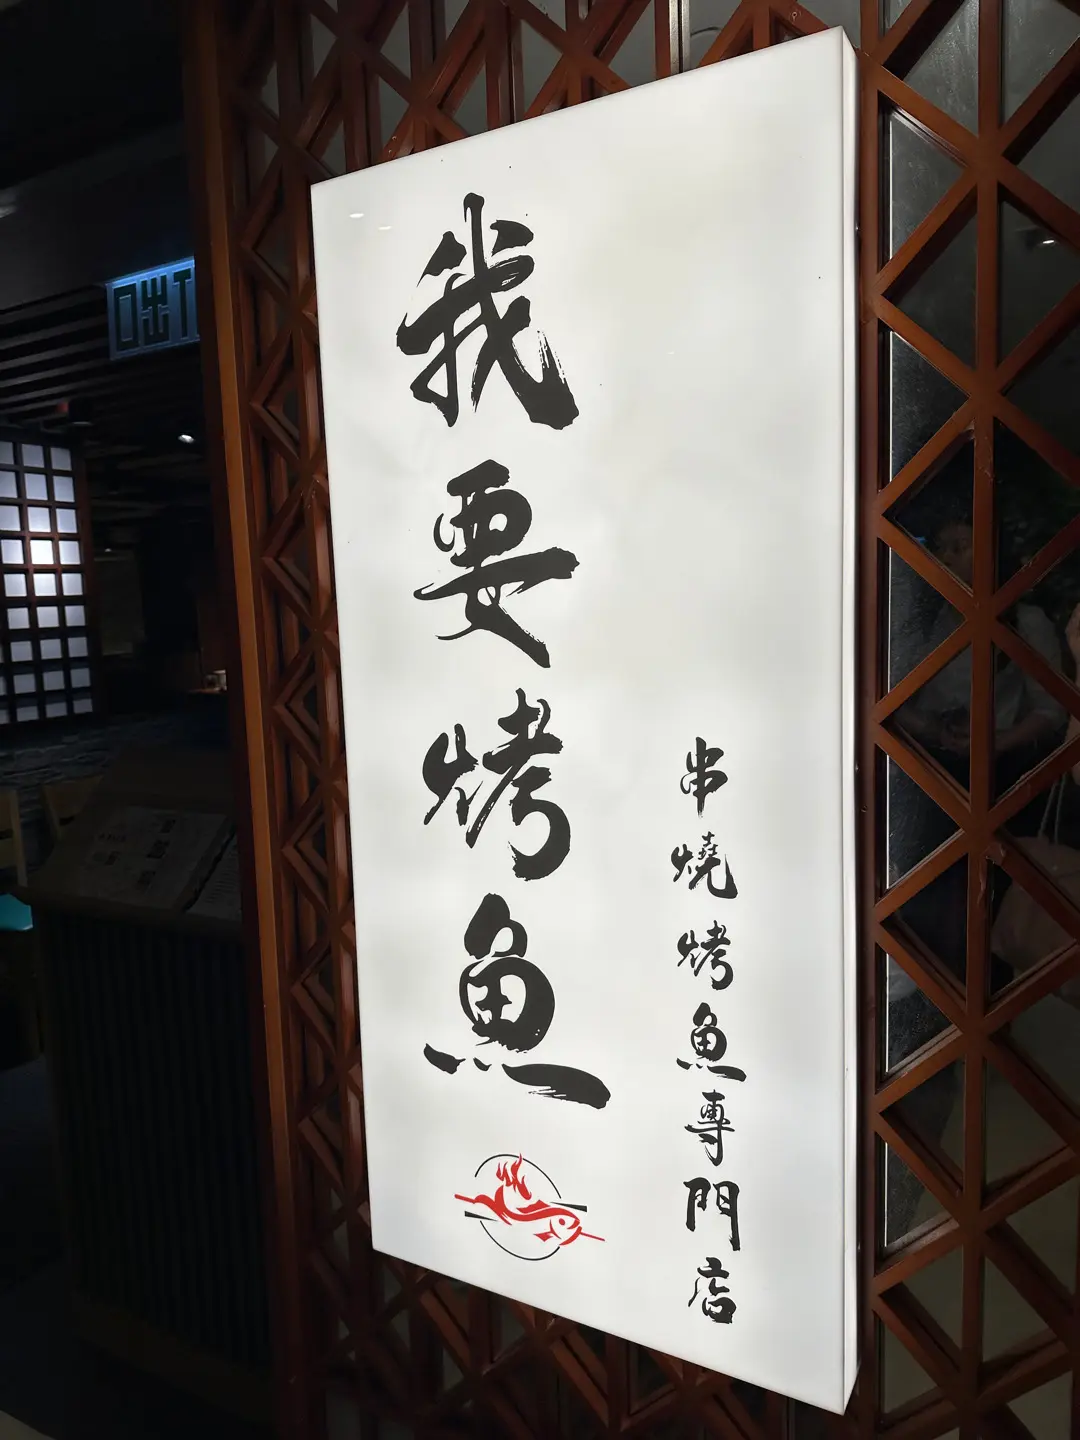 我要烤魚
串燒烤魚專門店
出口